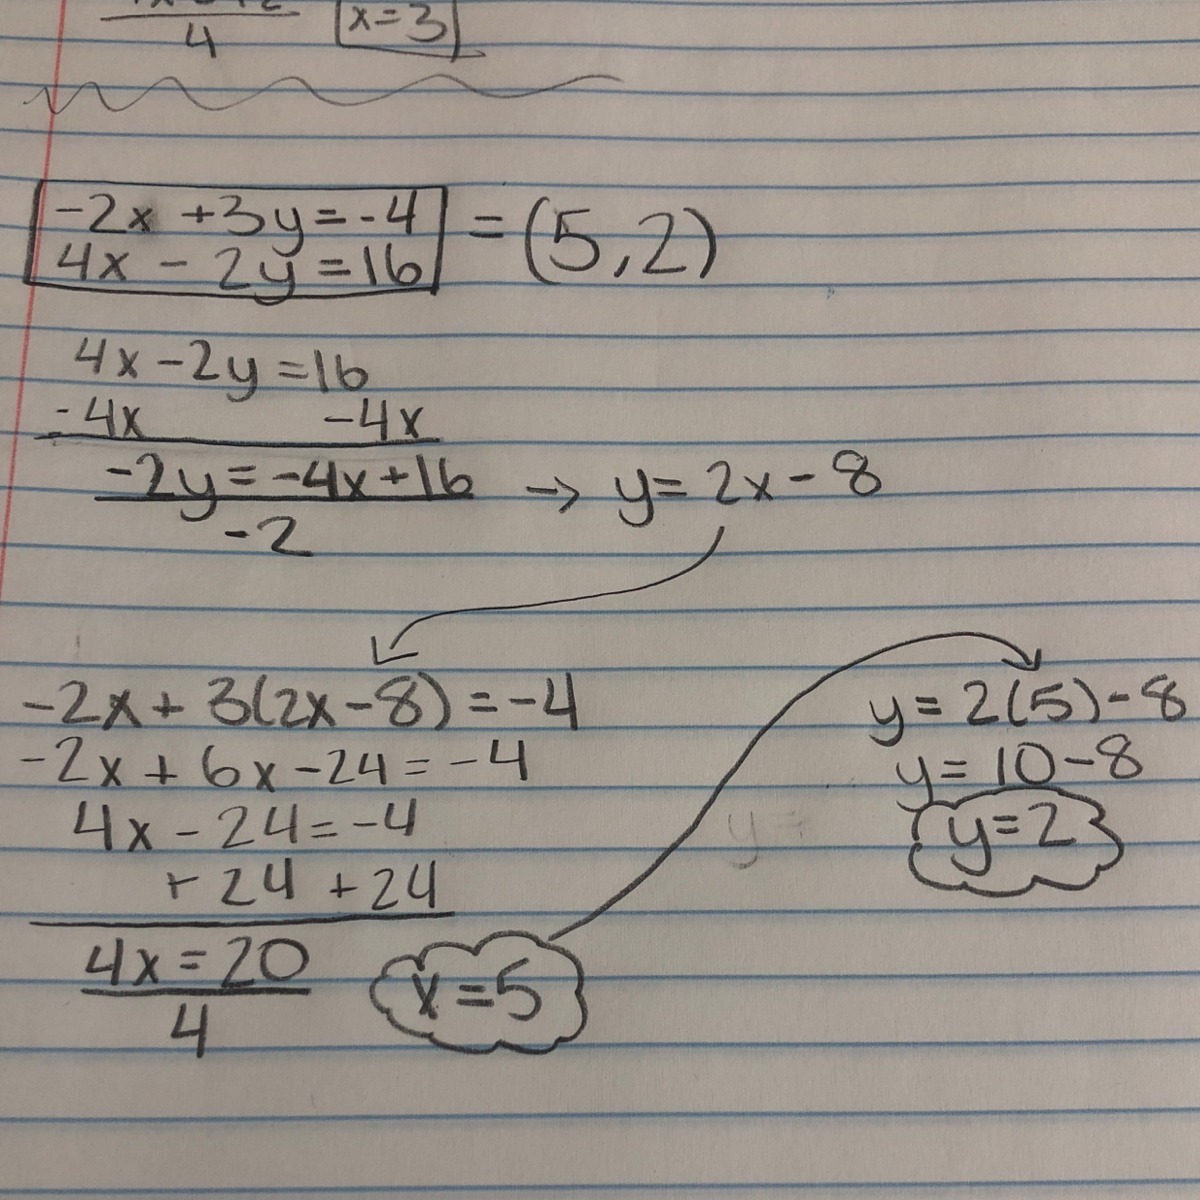 4 x=3
-2x +3y=-4
4x - 2y=16 = (5,2)
4x-2y=16
-4x -4x
-2y=-4x+16 → y=2x-8
-2
-2x+3(2x-8)=-4
-2x+6x-24=-4
4x-24=-4
+24 +24
4x=20
4
x=5
y=2(5)-8
y=10-8
y=2
y=